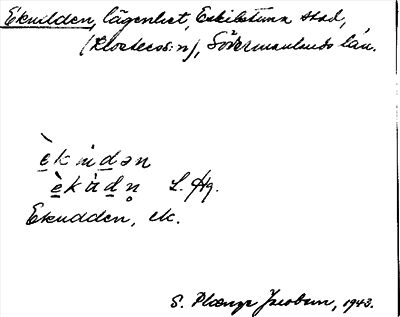 Ekudden, lägenhet, Eskilstuna stad,
(Klosters s:n), Södermanlands län.
è k ù d ə n
è k ù d n̥ L. Hg.
Ekudden, ek.
S. Plænge Jacobson, 1943.